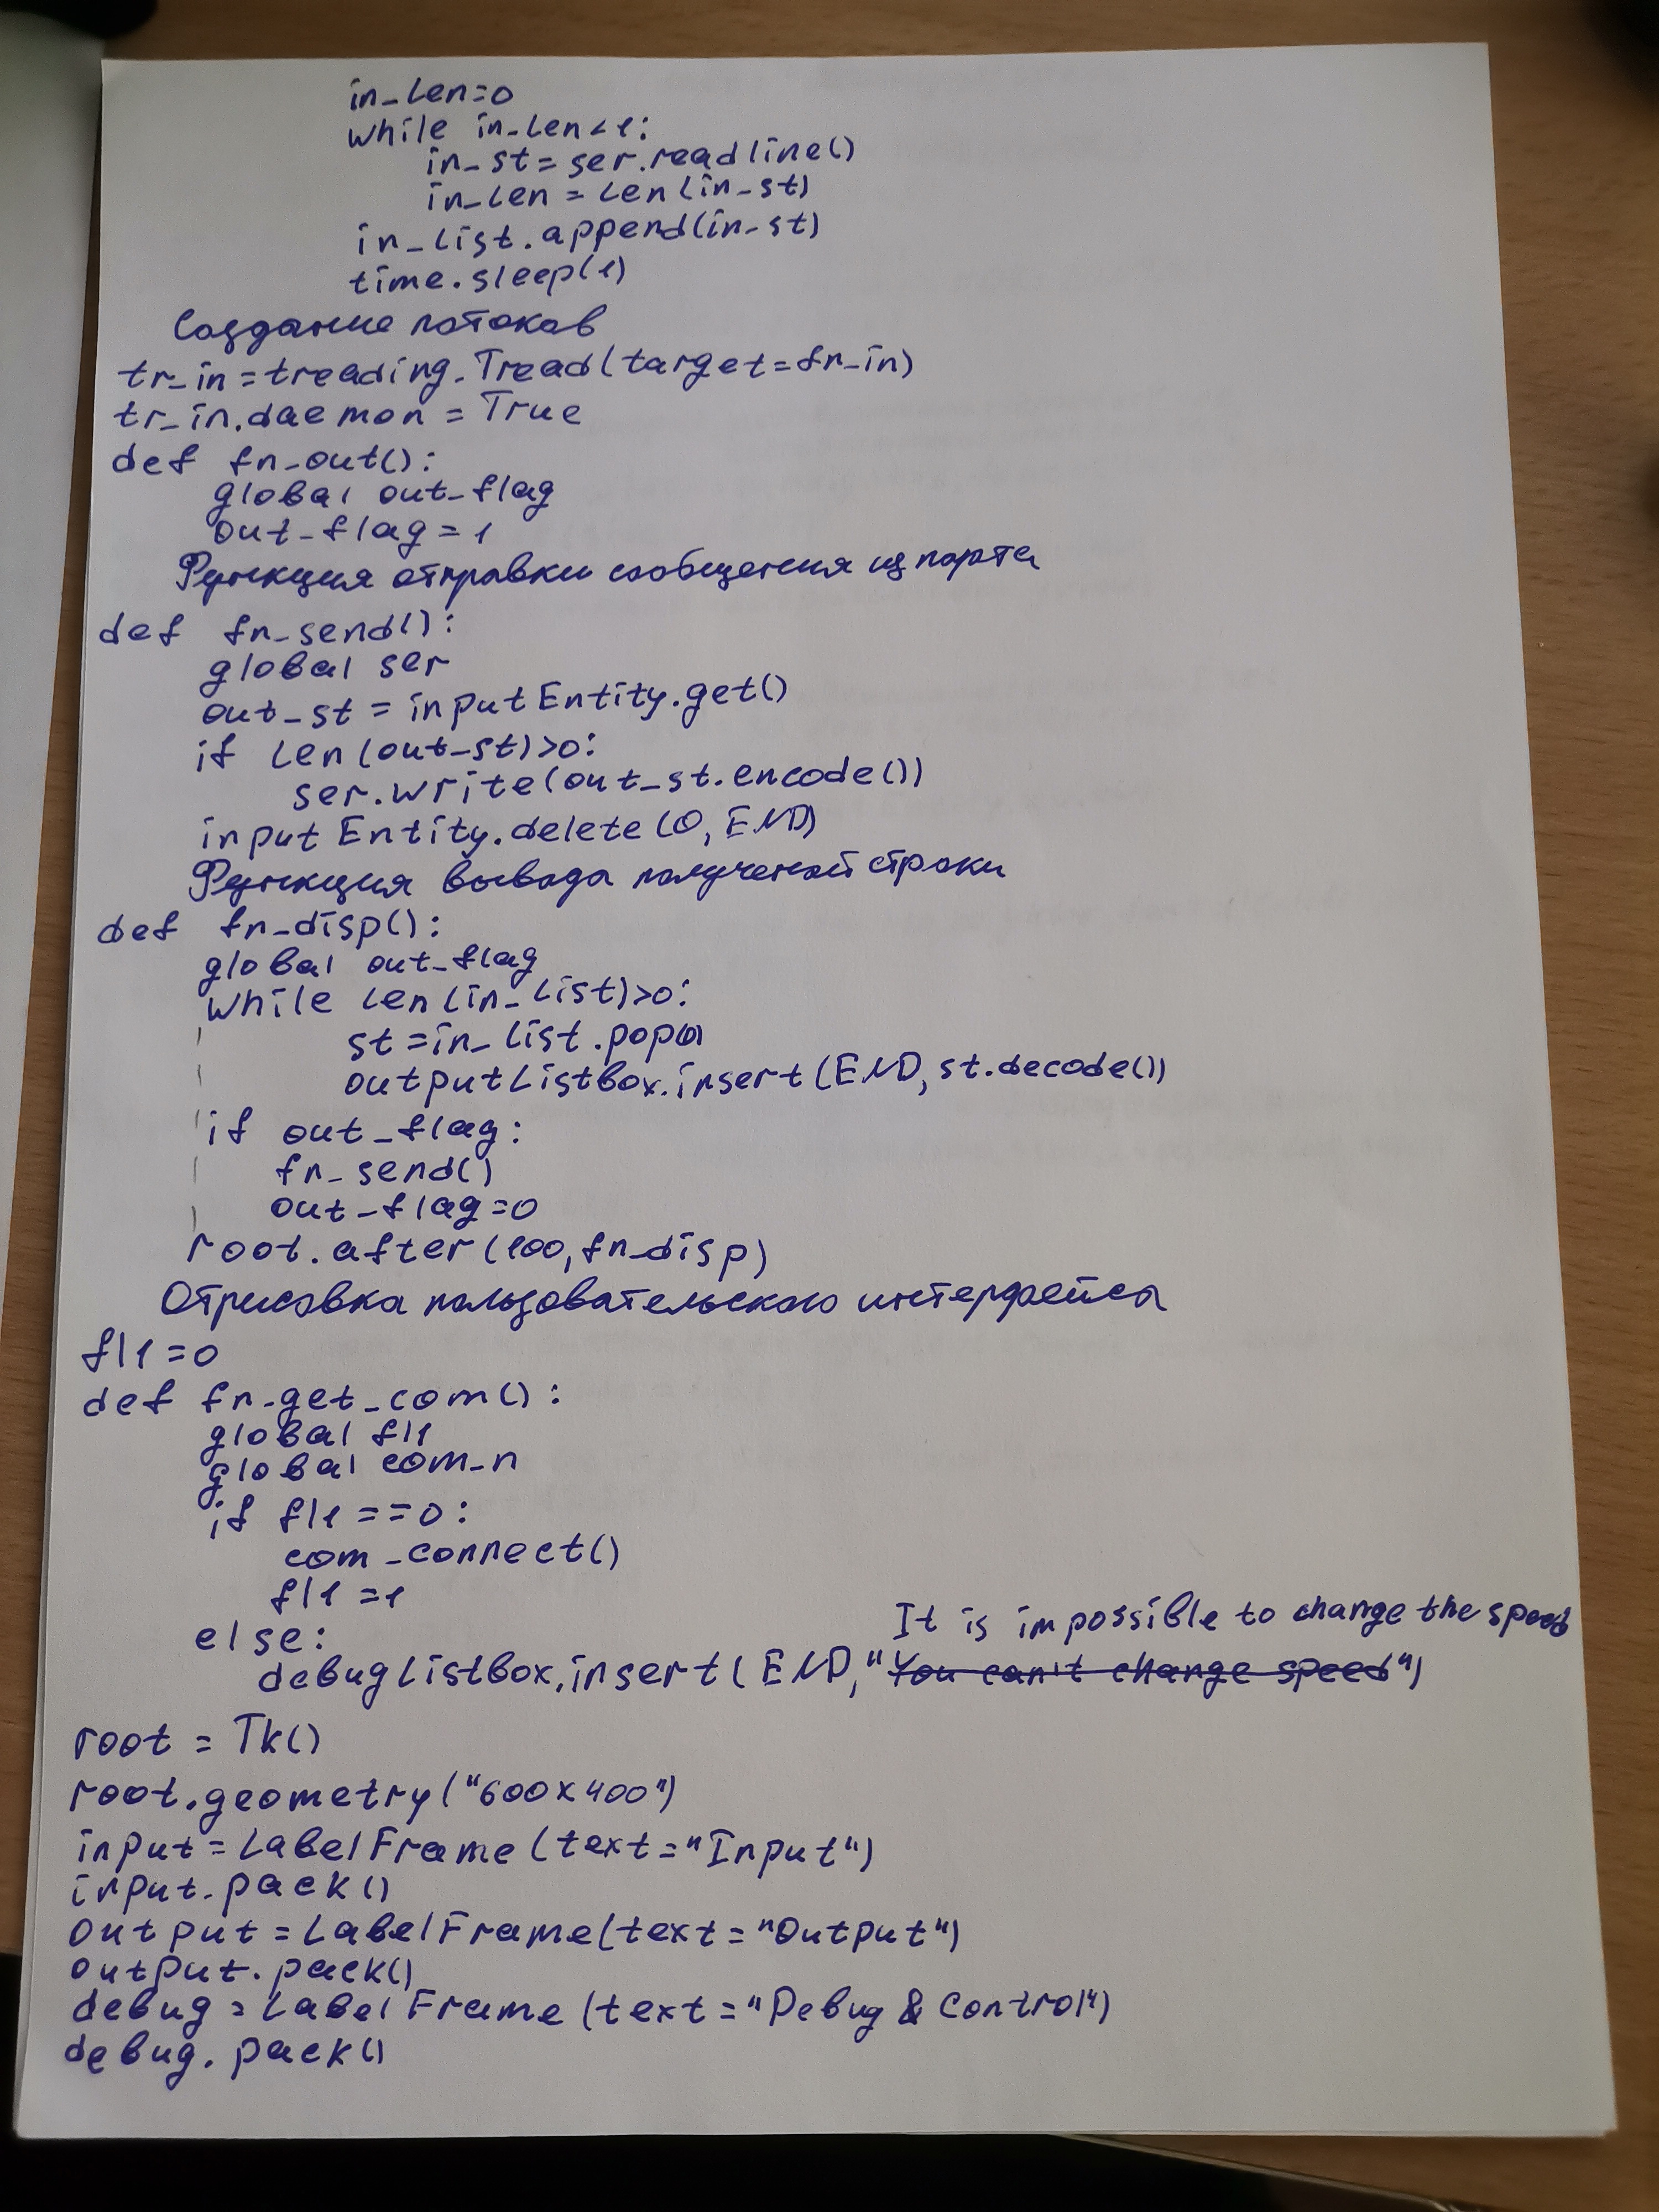 in_len=0
while in_len<1:
in_st=ser.readline()
in_len=len(in_st)
in_list.append(in_st)
time.sleep(1)
Создание потоков
tr_in=treading.Tread(target=fn_in)
tr_in.daemon=True
def fn_out():
global out_flag
out_flag=1
Функция отправки сообщения из порта
def fn_send():
global ser
out_st=inputEntity.get()
if len(out_st)>0:
ser.write(out_st.encode())
inputEntity.delete(0,END)
Функция вывода полученой строки
def fn_disp():
global out_flag
while len(in_list)>0:
st=in_list.pop(0)
outputListbox.insert(END,st.decode())
if out_flag:
fn_send()
out_flag=0
root.after(100,fn_disp)
Отрисовка пользовательского интерфейса
fl1=0
def fn_get_com():
global fl1
global com_n
if fl1==0:
com_connect()
fl1=1
else:
It is impossible to change the speed
debugListbox.insert(END,"You can't change speed")
root=Tk()
root.geometry("600x400")
input=LabelFrame(text="Input")
input.pack()
output=LabelFrame(text="Output")
output.pack()
debug=LabelFrame(text="Debug & Control")
debug.pack()